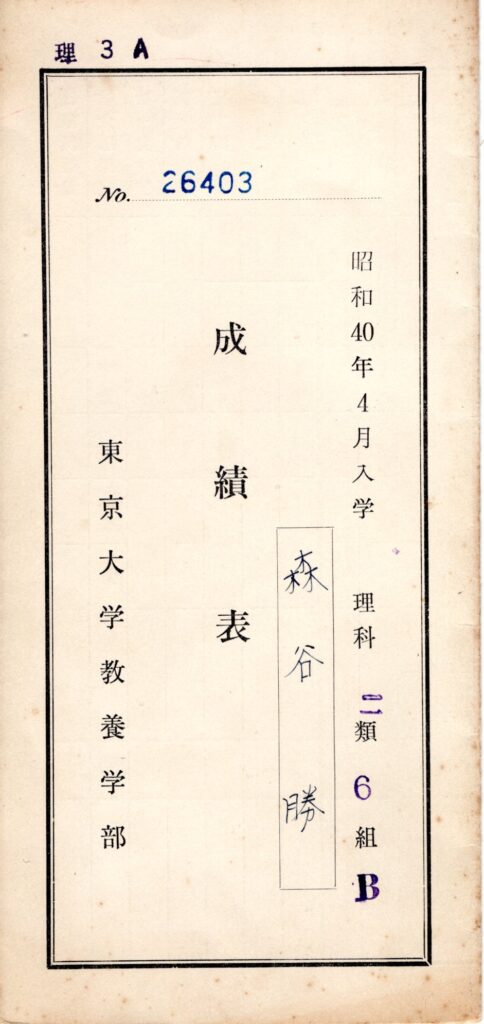 理 3 A
No. 26403
昭和40年4月入学 理科 二類 6組 B
森谷 勝
成績表
東京大学教養学部